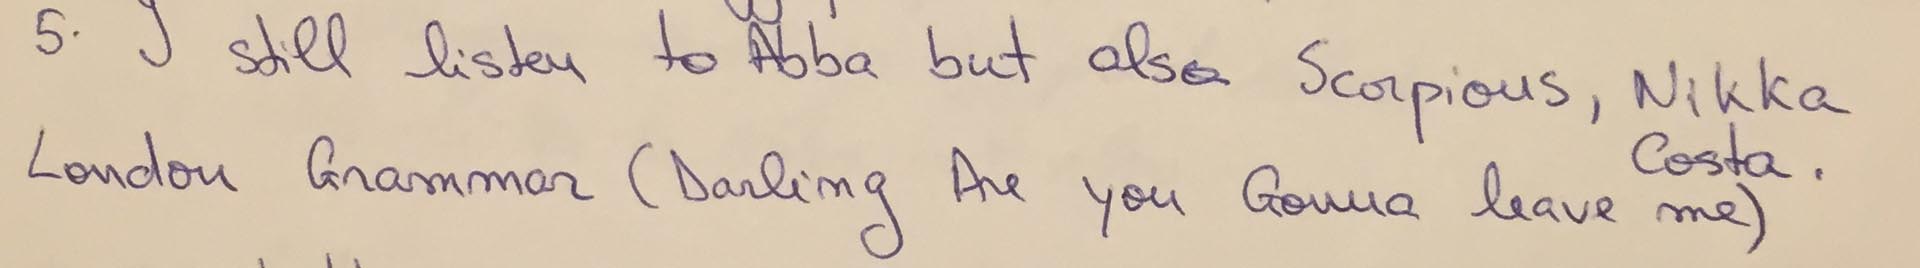 5. I still listen to Abba but also Scorpions, Nikka
Costa.
London Grammar (Darling Are you Gonna leave me)